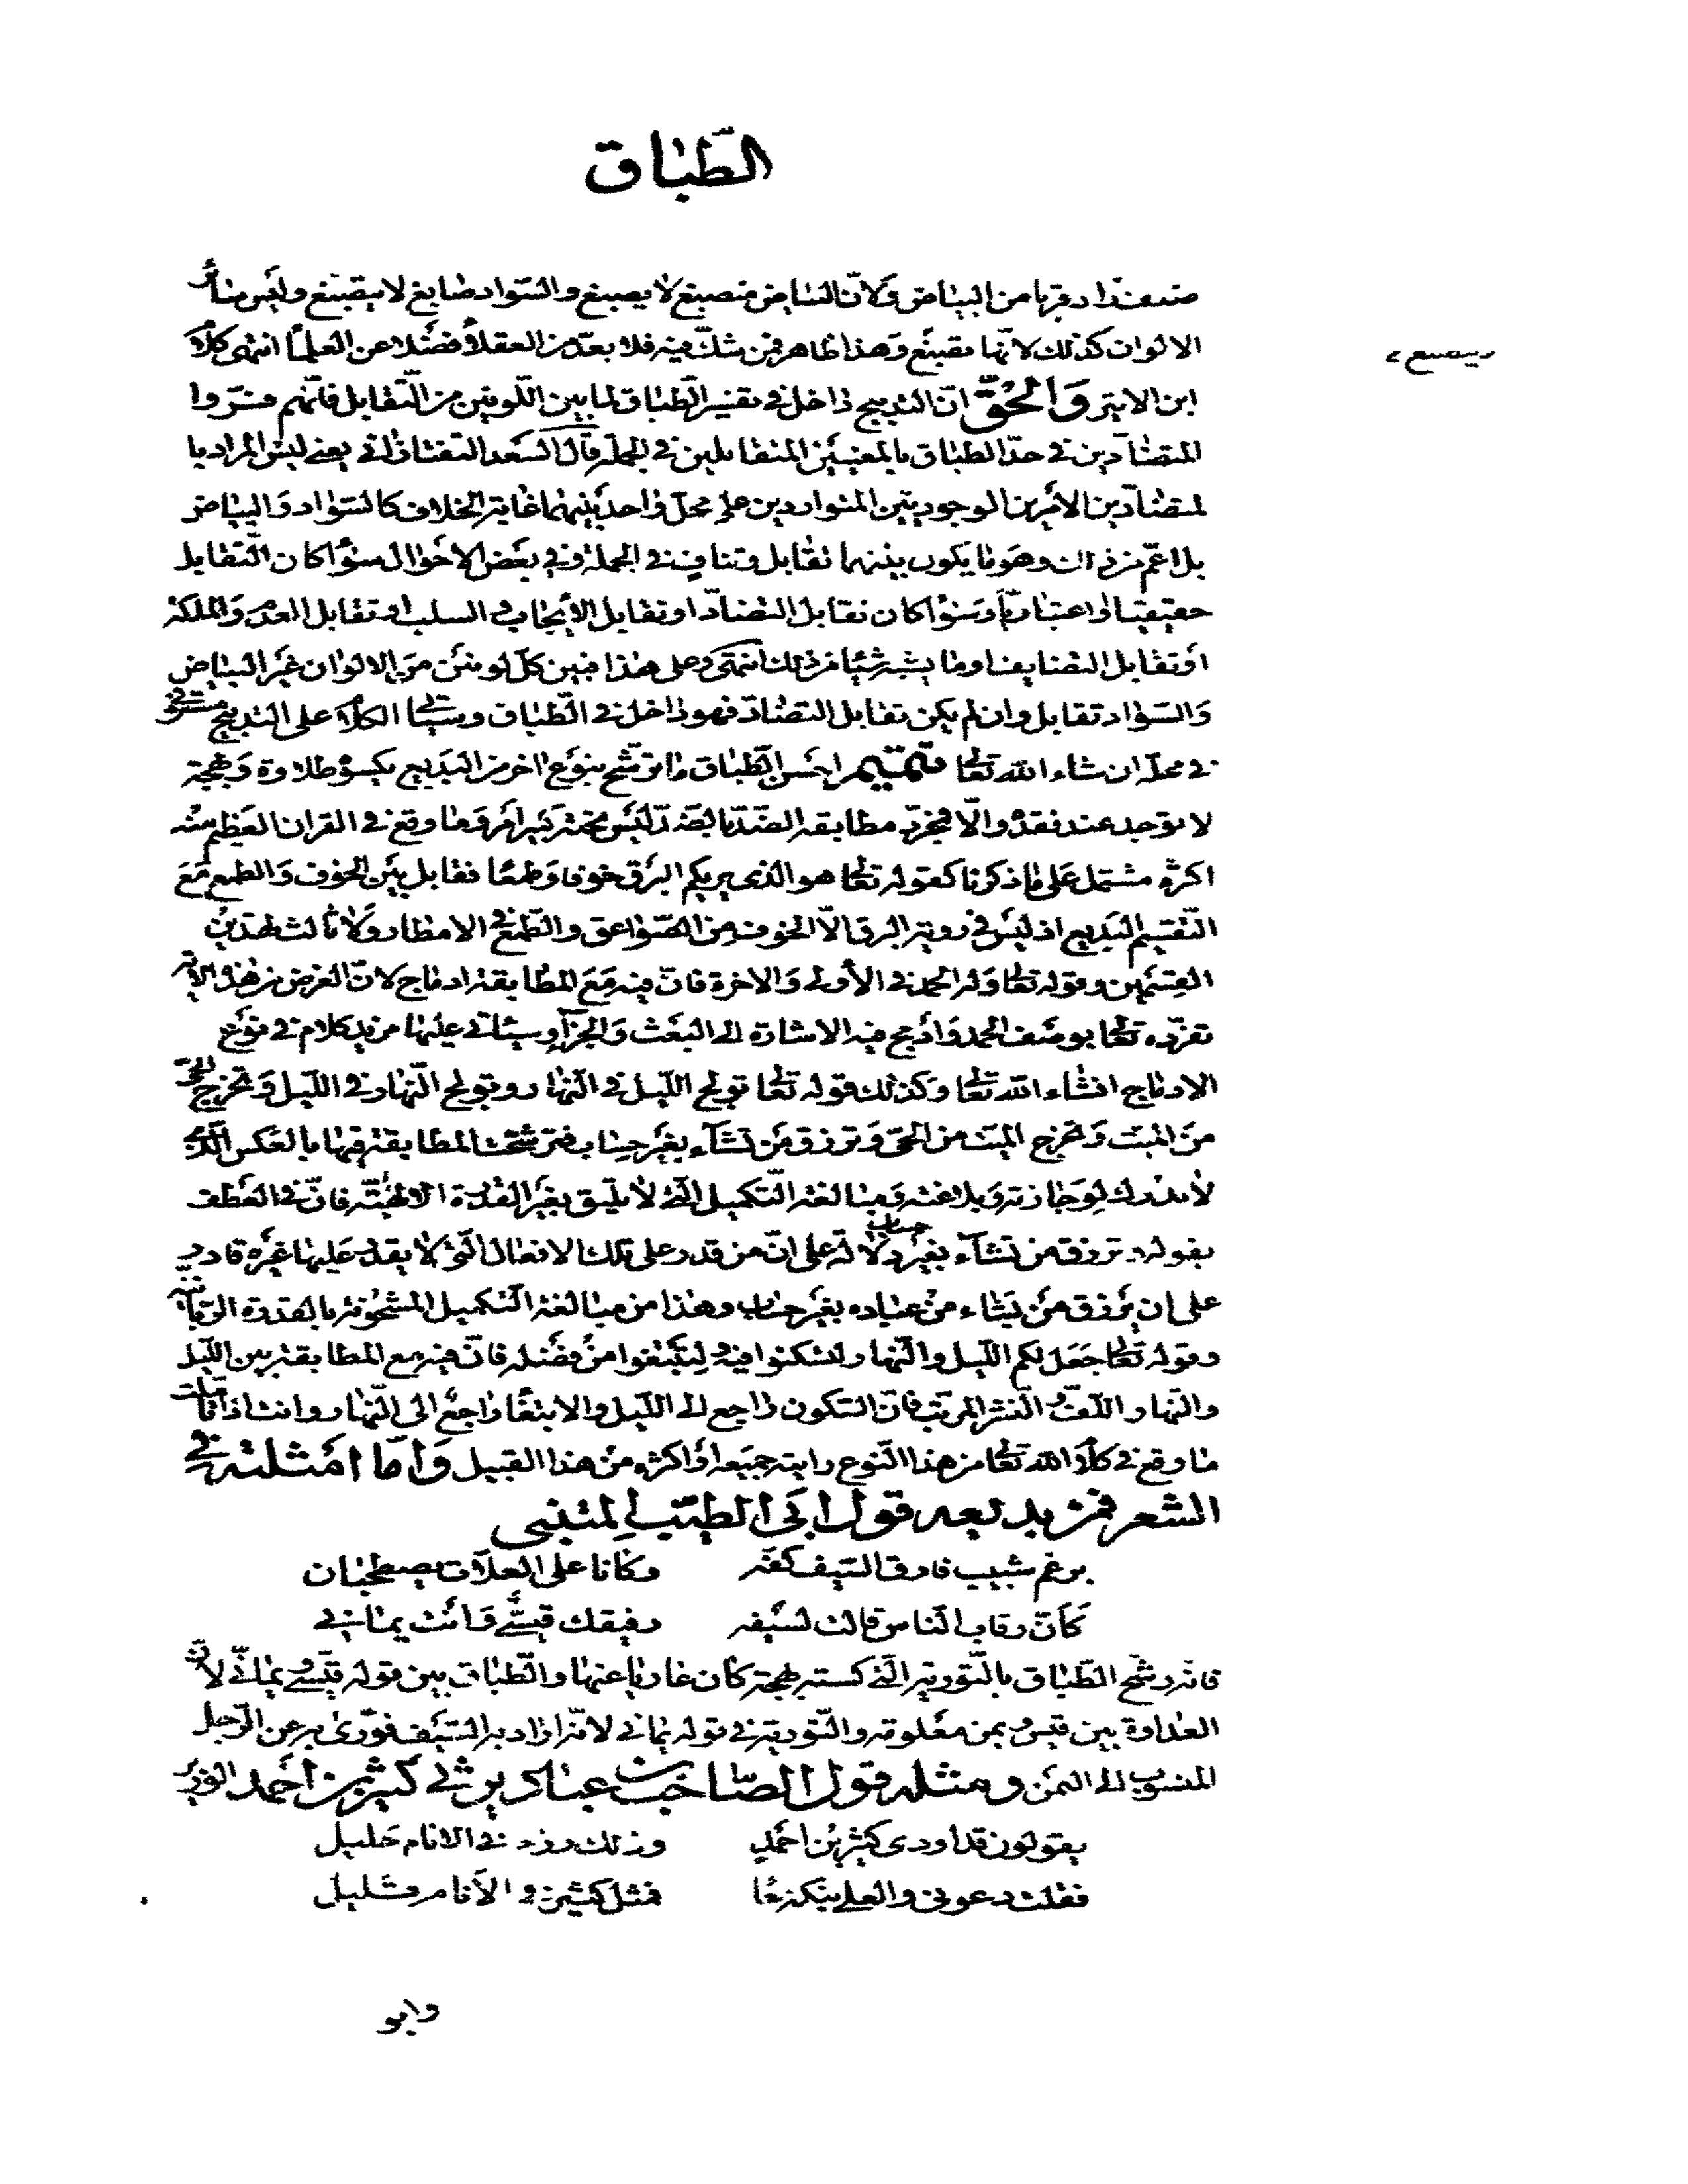 الطّباق
ضعف زاد قربا من البياض ولانّ البياض منصبغ لا يصبغ والسّواد صابغ لا ينصبغ وليس سائر
الالوان كذلك لانّها تصبغ وهذا ظاهر فمن شكّ فيه فلا يعدّ من العقلاء فضلا عن العلماء انتهى كلام
ابن الاثير وَالحُقّ انّ التدبيج داخل في تفسير الطّباق لما بين اللّونين من التّقابل فانّهم فسّروا
المتضادّين في حدّ الطباق بالمعنيين المتقابلين في الجملة قال السّعد التفتازاني يعني ليس المراد با
لمتضادّين الامرين الوجوديّين المتواردين على محلّ واحد بينهما غاية الخلاف كالسّواد والبياض
بل اعمّ من ذلك وهو ما يكون بينهما تقابل وتناف في الجملة وفي بعض الاحوال سواء كان التّقابل
حقيقيّا او اعتباريّا وسواء كان تقابل التضادّ او تقابل الايجاب والسلب او تقابل العدم والملكة
او تقابل التضايف او ما يشبه شيئا من ذلك انتهى وعلى هذا فبين كلّ لونين من الالوان غير البياض
والسّواد تقابل وان لم يكن تقابل التضادّ فهو داخل في الطّباق وسياتي الكلام على التدبيج مستوفى
في محلّه ان شاء الله تعالى تتميم احسن الطّباق ما ترشّح بنوع اخر من البديع يكسوه طلاوة وبهجة
لا توجد عند فقده والّا فمجرّد مطابقة الضّدّ بالضّدّ ليس تحته كبير امر وما وقع في القران العظيم منه
اكثره مشتمل على ما ذكرنا كقوله تعالى هو الذي يريكم البرق خوفا وطمعا فقابل بين الخوف والطمع مع
التّقسيم البديع اذ ليس في روية البرق الّا الخوف من الصّواعق والطّمع في الامطار ولا ثالث لهذين
القسمين وقوله تعالى وله الحمد في الأولى والاخرة فانّ فيه مع المطابقة ادماج لانّ الغرض من هذه الاية
تفرّده تعالى بوصف الحمد وادمج فيه الاشارة الى البعث والجزاء وسياتي عليها مزيد كلام في نوع
الادماج انشاء الله تعالى وكذلك قوله تعالى تولج اللّيل في النّهار وتولج النّهار في اللّيل وتخرج الحيّ
من الميّت وتخرج الميّت من الحيّ وترزق من تشاء بغير حساب فترشّحت المطابقة فيها بالعكس الّذي
لا يدرك لوجازته وبلاغته ومبالغة التّكميل الّتي لا يليق بغير القدرة الالهيّة فانّ في العطف
بقوله وترزق من تشاء بغير حساب دلالة على انّ من قدر على تلك الافعال الّتي لا يقدر عليها غيره قادر
على ان يرزق من يشاء من عباده بغير حساب وهذا من مبالغة التّكميل المشحونة بالقدرة الرّبّانيّة
وقوله تعالى جعل لكم اللّيل والنّهار لتسكنوا فيه ولتبتغوا من فضله فانّ فيه مع المطابقة بين اللّيل
والنّهار اللّفّ والنّشر المرتّب فانّ السّكون راجع الى اللّيل والابتغاء راجع الى النّهار وانت اذا تأمّلت
ما وقع في كلام الله تعالى من هذا النّوع رايته جميعه او اكثره من هذا القبيل وَامّا امثلته في
الشعر فمن بديعه قول ابي الطيّب المتنبي
برغم شبيب فارق السّيف كفّه وكانا على العلّات يصطحبان
كأنّ رقاب النّاس قالت لسيفه رفيقك قيسيّ وانت يماني
فانّه رشّح الطّباق بالتّورية الّتي كسته بهجة كان عاريا عنها والطّباق بين قوله قيسيّ ويماني لانّ
العداوة بين قيس ويمن معلومة والتّورية في قوله يماني لانّه اراد به السّيف فورّى به عن الرّجل
المنسوب الى اليمن ومثله قول الصّاحب بن عبّاد يرثي كثير بن احمد الوزير
يقولون قد اودى كثير بن احمد وذلك رزء في الانام جليل
فقلت دعوني والعلى نبكه معا فمثل كثير في الأنام قليل
وابو